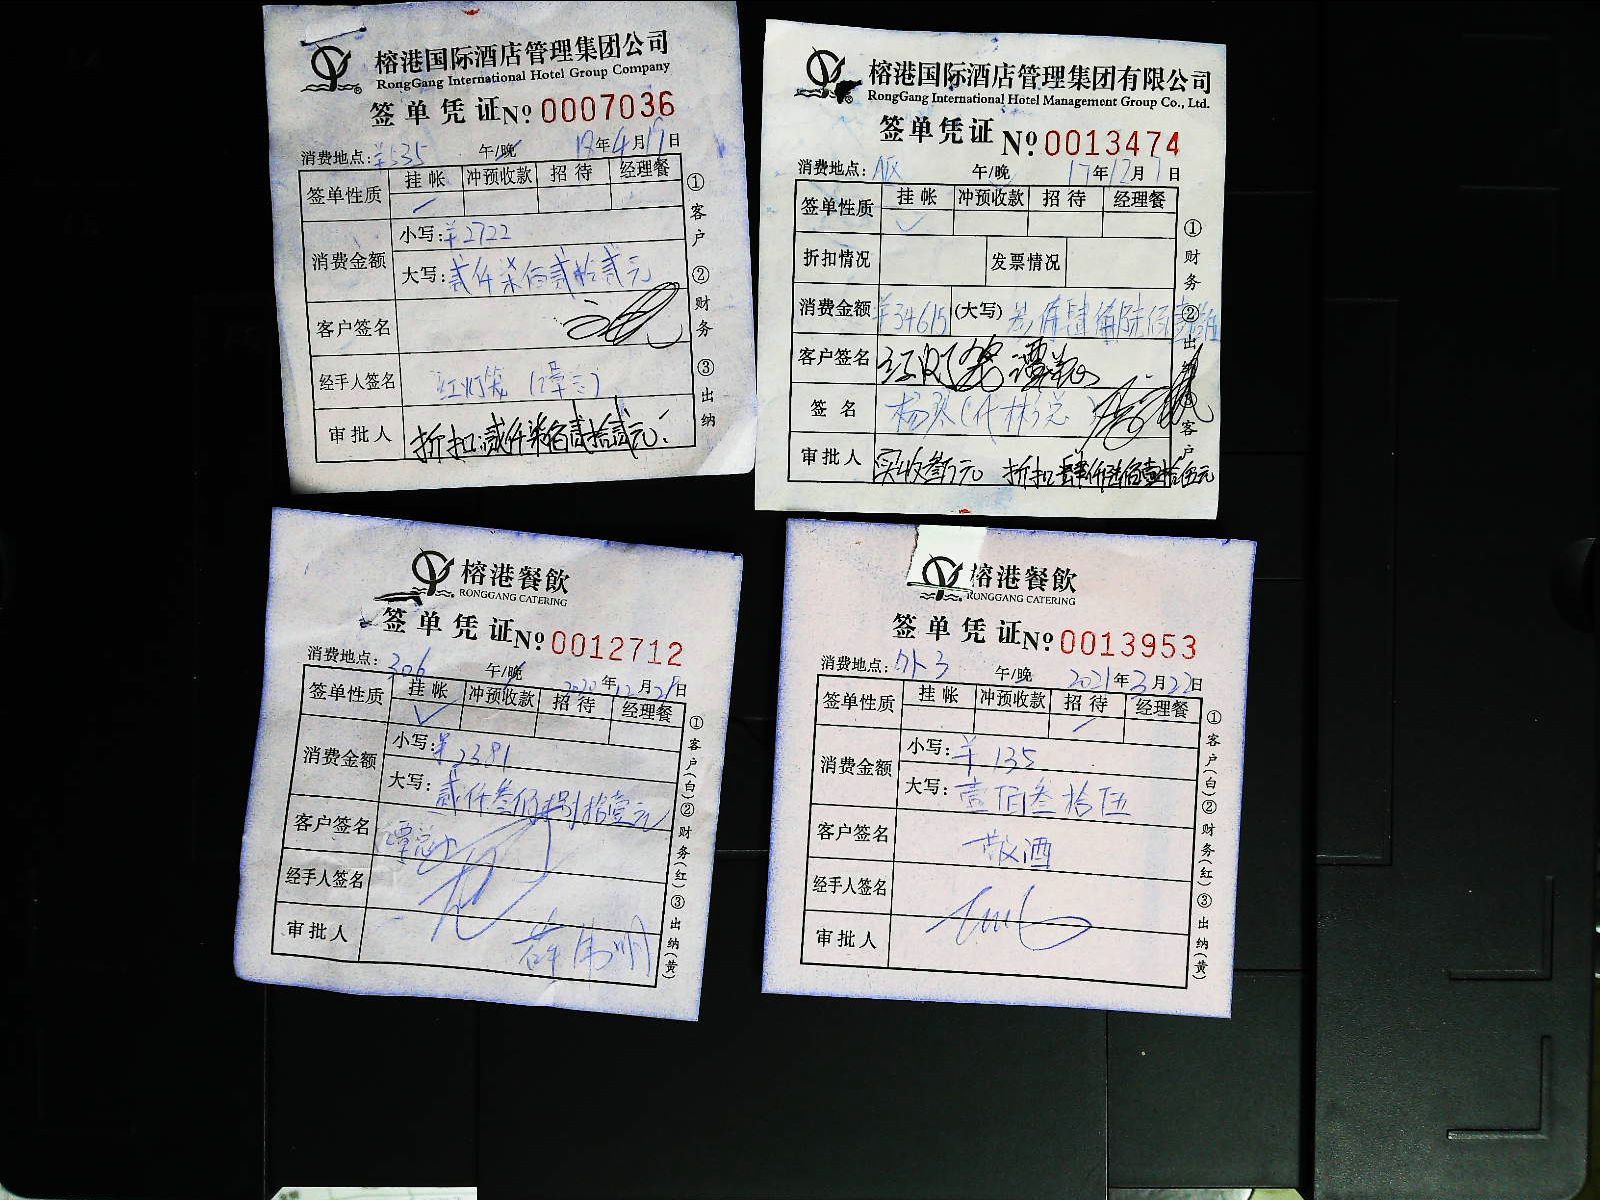 榕港国际酒店管理集团公司
RongGang International Hotel Group Company
签单凭证 № 0007036
消费地点: 午/晚 18年4月19日
签单性质 挂帐 冲预收款 招待 经理餐
消费金额 小写:¥2722
大写:贰仟柒佰贰拾贰元
客户签名
经手人签名 红灯笼
审批人 折扣:贰仟柒佰贰拾贰元
①客户 ②财务 ③出纳
榕港国际酒店管理集团有限公司
RongGang International Hotel Management Group Co., Ltd.
签单凭证 № 0013474
消费地点: 午/晚 17年12月7日
签单性质 挂帐 冲预收款 招待 经理餐
折扣情况 发票情况
消费金额 ¥34615 (大写)
客户签名 红灯笼
签名
审批人 实收叁万元 折扣肆仟陆佰壹拾伍元
①财务 ②出纳 客户
榕港餐飲
RONGGANG CATERING
签单凭证 № 0012712
消费地点: 306 午/晚 2020年12月29日
签单性质 挂帐 冲预收款 招待 经理餐
消费金额 小写:¥2391
大写:贰仟叁佰玖拾壹元
客户签名
经手人签名
审批人
①客户(白)②财务(红)③出纳(黄)
榕港餐飲
RONGGANG CATERING
签单凭证 № 0013953
消费地点: 外3 午/晚 2021年3月22日
签单性质 挂帐 冲预收款 招待 经理餐
消费金额 小写:¥135
大写:壹佰叁拾伍
客户签名 散酒
经手人签名
审批人
①客户(白)②财务(红)③出纳(黄)